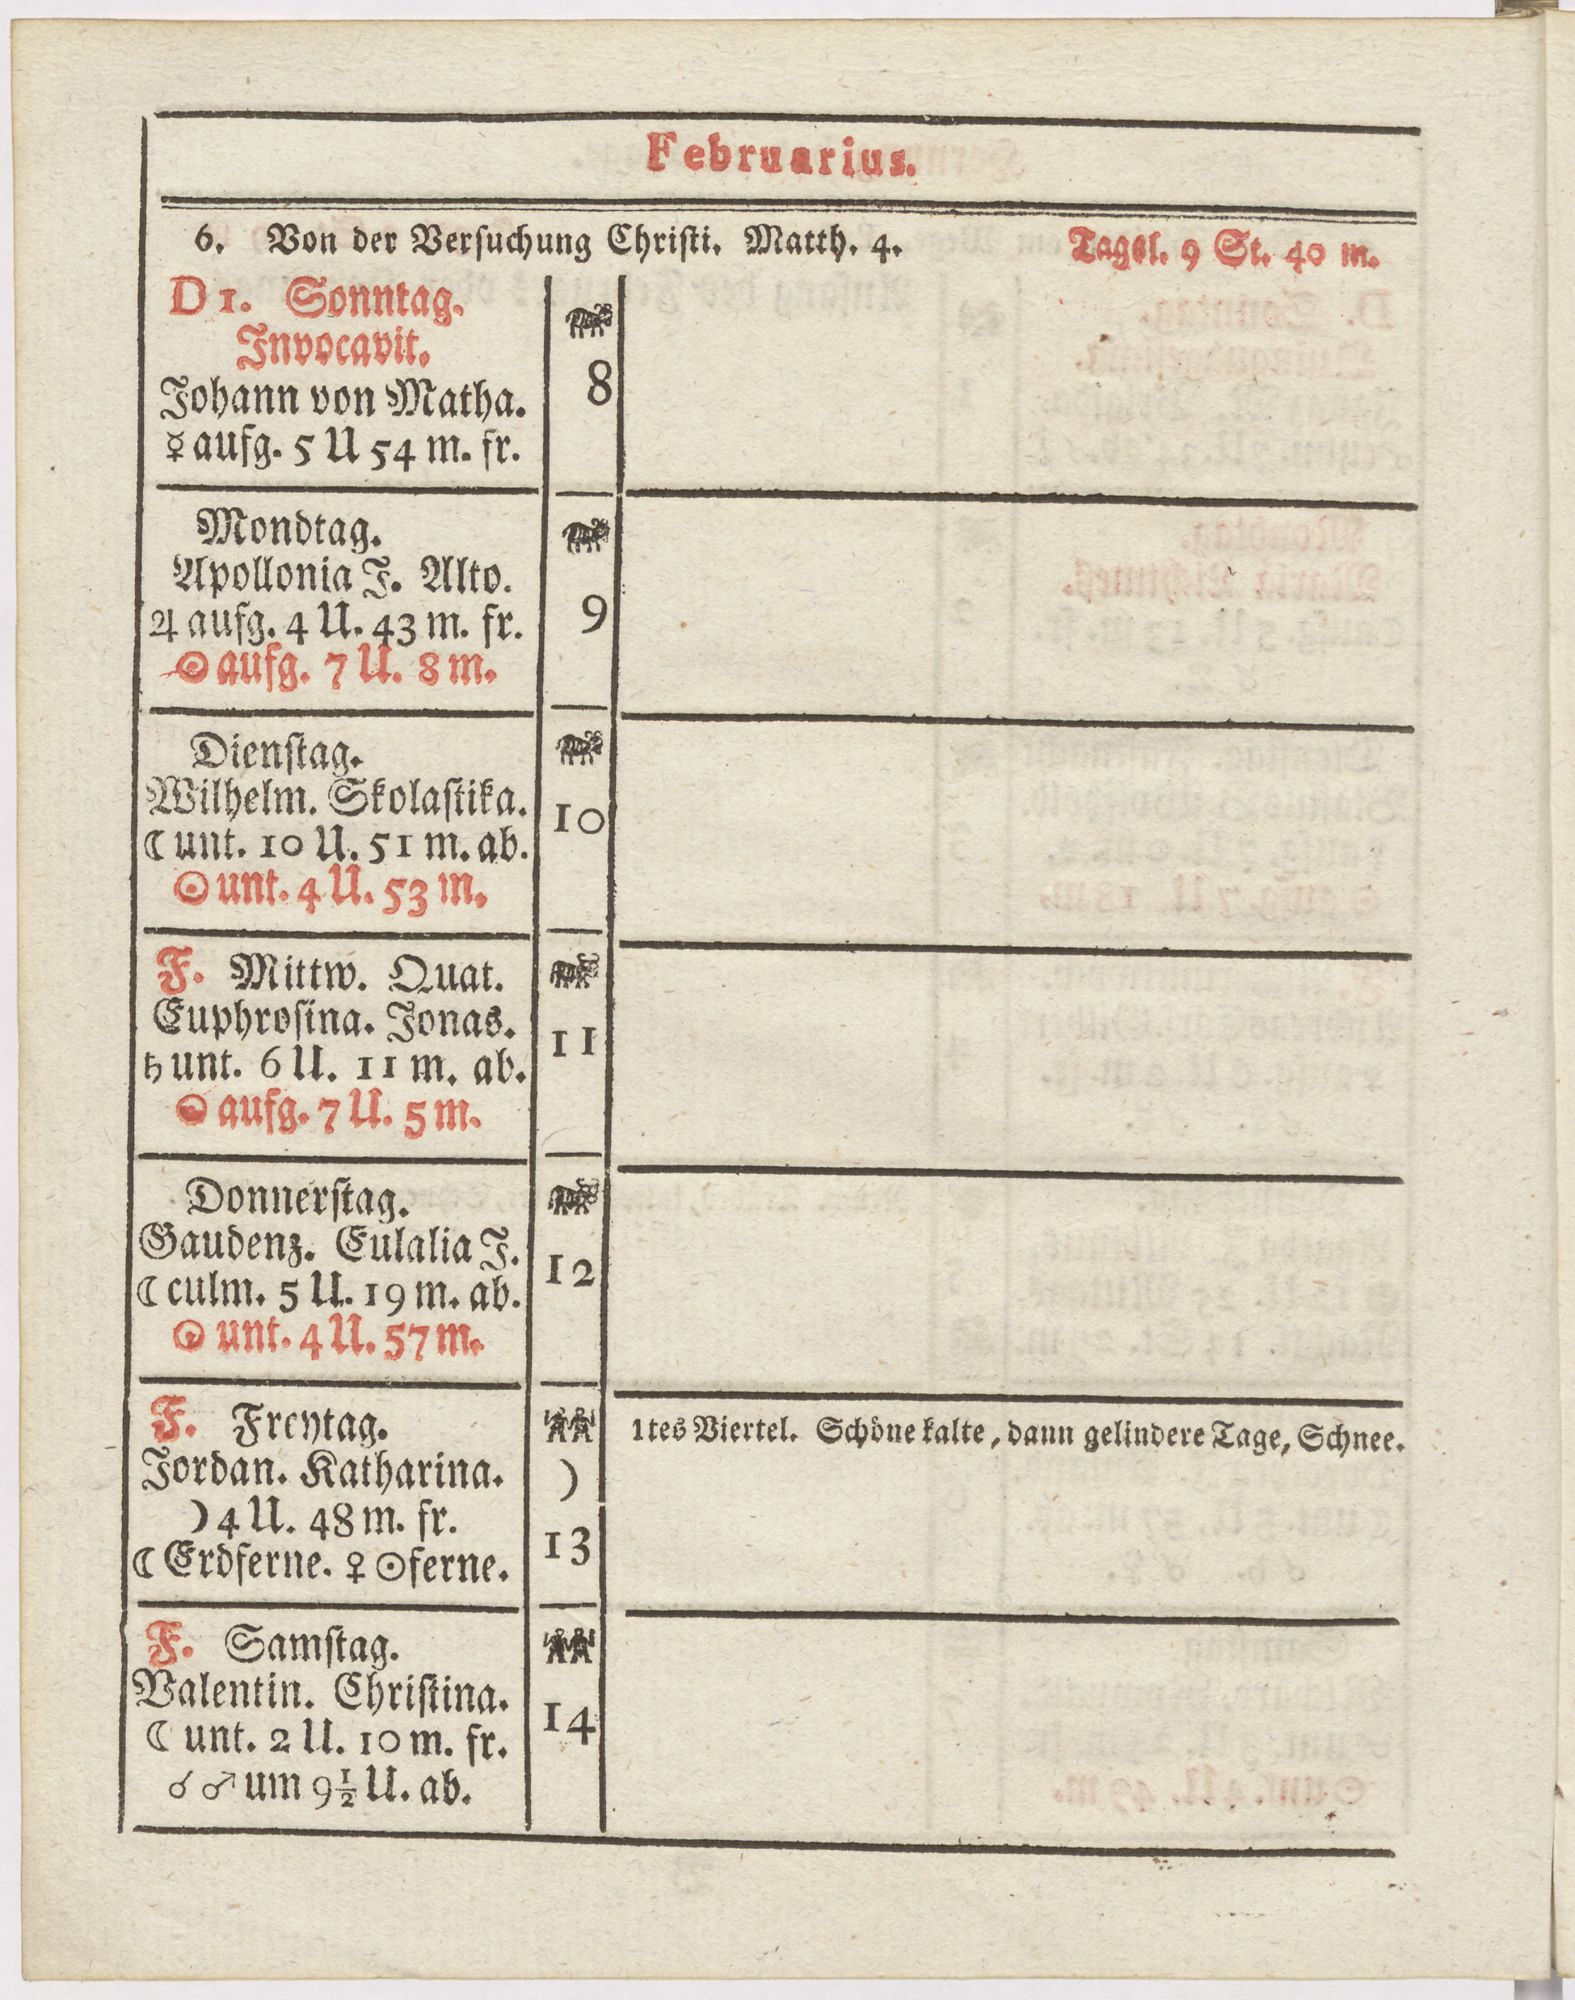 Februarius.
6. Von der Versuchung Christi. Matth. 4. Tagsl. 9 St. 40 m.
D 1. Sonntag.
Invocavit.
Johann von Matha.
☿ aufg. 5 U 54 m. fr.
8
Mondtag.
Apollonia J. Alto.
♃ aufg. 4 U. 43 m. fr.
☉ aufg. 7 U. 8 m.
9
Dienstag.
Wilhelm. Skolastika.
☾ unt. 10 U. 51 m. ab.
☉ unt. 4 U. 53 m.
10
F. Mittw. Quat.
Euphrosina. Jonas.
♄ unt. 6 U. 11 m. ab.
☉ aufg. 7 U. 5 m.
11
Donnerstag.
Gaudenz. Eulalia J.
☾ culm. 5 U. 19 m. ab.
☉ unt. 4 U. 57 m.
12
F. Freytag.
Jordan. Katharina.
☽ 4 U. 48 m. fr.
☾ Erdferne. ♀ ☉ ferne.
☽
13
1tes Viertel. Schöne kalte, dann gelindere Tage, Schnee.
F. Samstag.
Valentin. Christina.
☾ unt. 2 U. 10 m. fr.
☌ ♂ um 9½ U. ab.
14